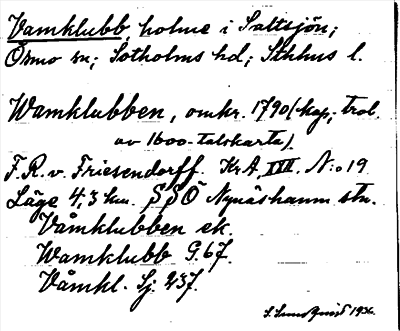 Vamklubb, holme i Saltsjön;
Ösmo sn; Sotholms hd; Sthlms l.
Wamklubben, omkr. 1790 (kop; trol.
av 1600-talskarta).
F.R. v. Friesendorff. KrA, XIII, N:o 19
Läge 4,3 km. SSÖ Nynäshamn stn.
Våmklubben ek.
Wamklubb G.67.
Våmkl. Sj. 237.
S. Lundquist 1936.